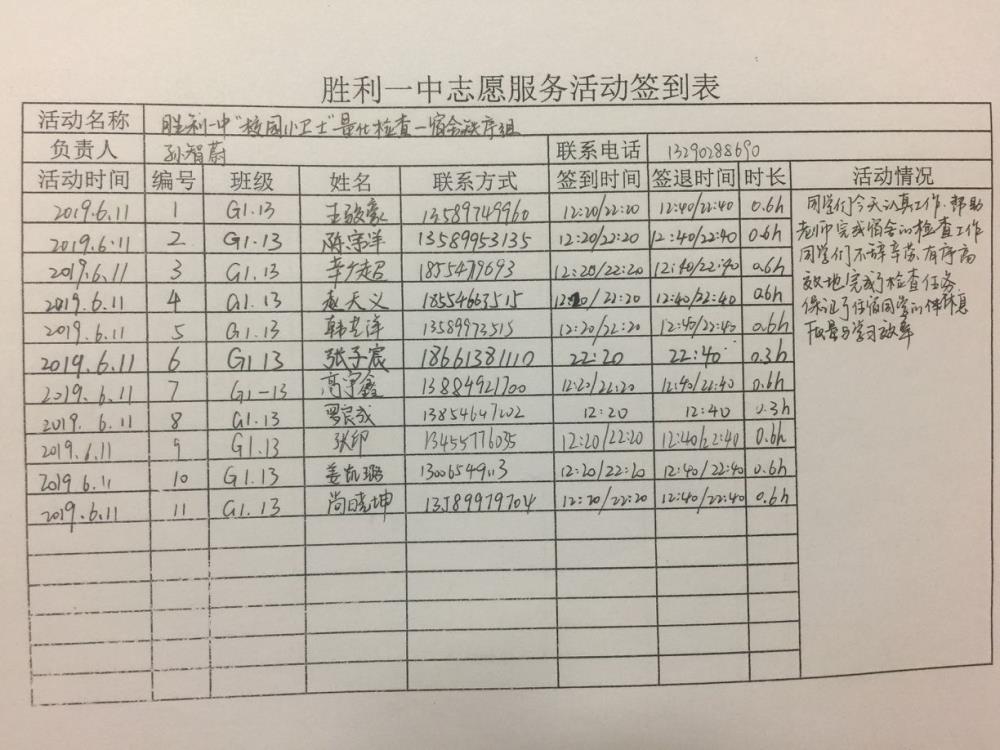 胜利一中志愿服务活动签到表
活动名称 胜利一中"校园小卫士"量化检查-宿舍秩序组
负责人 孙智蔚 联系电话 13290288690
活动时间 编号 班级 姓名 联系方式 签到时间 签退时间 时长 活动情况
2019.6.11 1 G1.13 王骏豪 13589749960 12:20/22:20 12:40/22:40 0.6h
2019.6.11 2 G1.13 陈宗洋 13589953135 12:20/22:20 12:40/22:40 0.6h
2019.6.11 3 G1.13 1855479693 12:20/22:20 12:40/22:40 0.6h
2019.6.11 4 G1.13 赵天义 18554663515 12:20/22:20 12:40/22:40 0.6h
2019.6.11 5 G1.13 13589973515 12:20/22:20 12:40/22:40 0.6h
2019.6.11 6 G1.13 张子宸 18661381110 22:20 22:40 0.3h
2019.6.11 7 G1-13 高宇鑫 13884921700 12:20/22:20 12:40/22:40 0.6h
2019.6.11 8 G1.13 罗良成 12:20 12:40 0.3h
2019.6.11 9 G1.13 张印 13455776035 12:20/22:20 12:40/22:40 0.6h
2019.6.11 10 G1.13 姜凯璐 12:20/22:20 12:40/22:40 0.6h
2019.6.11 11 G1.13 尚晓坤 13589979704 12:20/22:20 12:40/22:40 0.6h
同学们今天认真工作,帮助
老师完成宿舍的检查工作
同学们不辞辛苦、有序高
效地完成了检查任务,
保证了住宿同学的休息
质量与学习效率